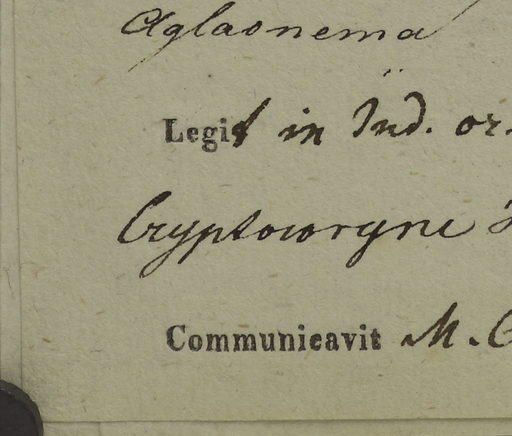 Aglaonema
Legit in Ind. or.
Cryptocoryne
Communicavit M.